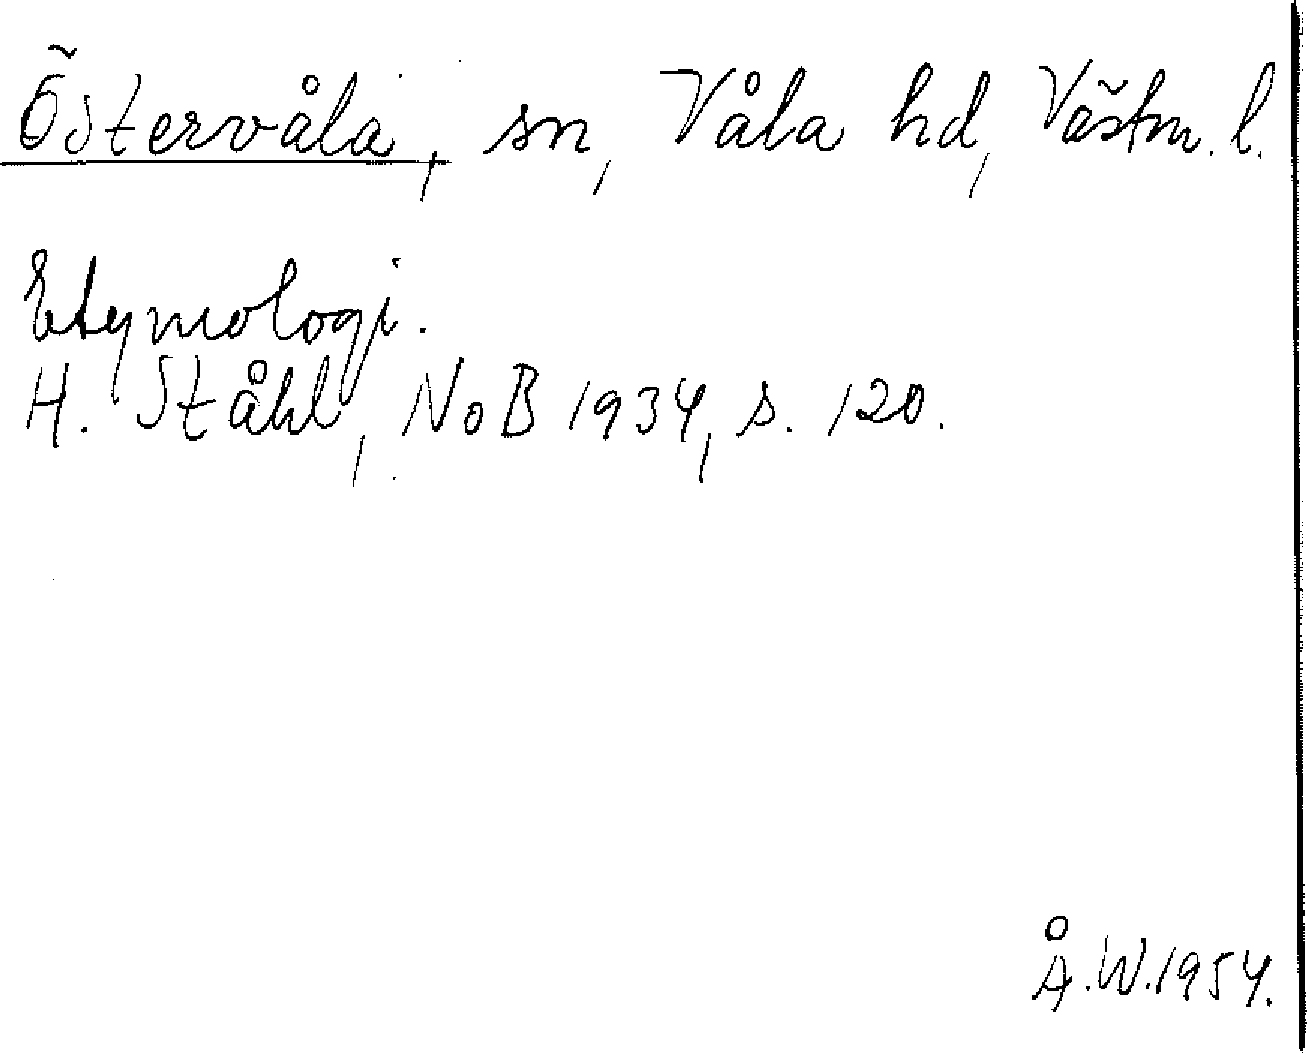 Östervåla, sn, Våla hd, Västm. l.
Etymologi.
H. Ståhl, NoB 1934, s. 120.
Å.W.1954.